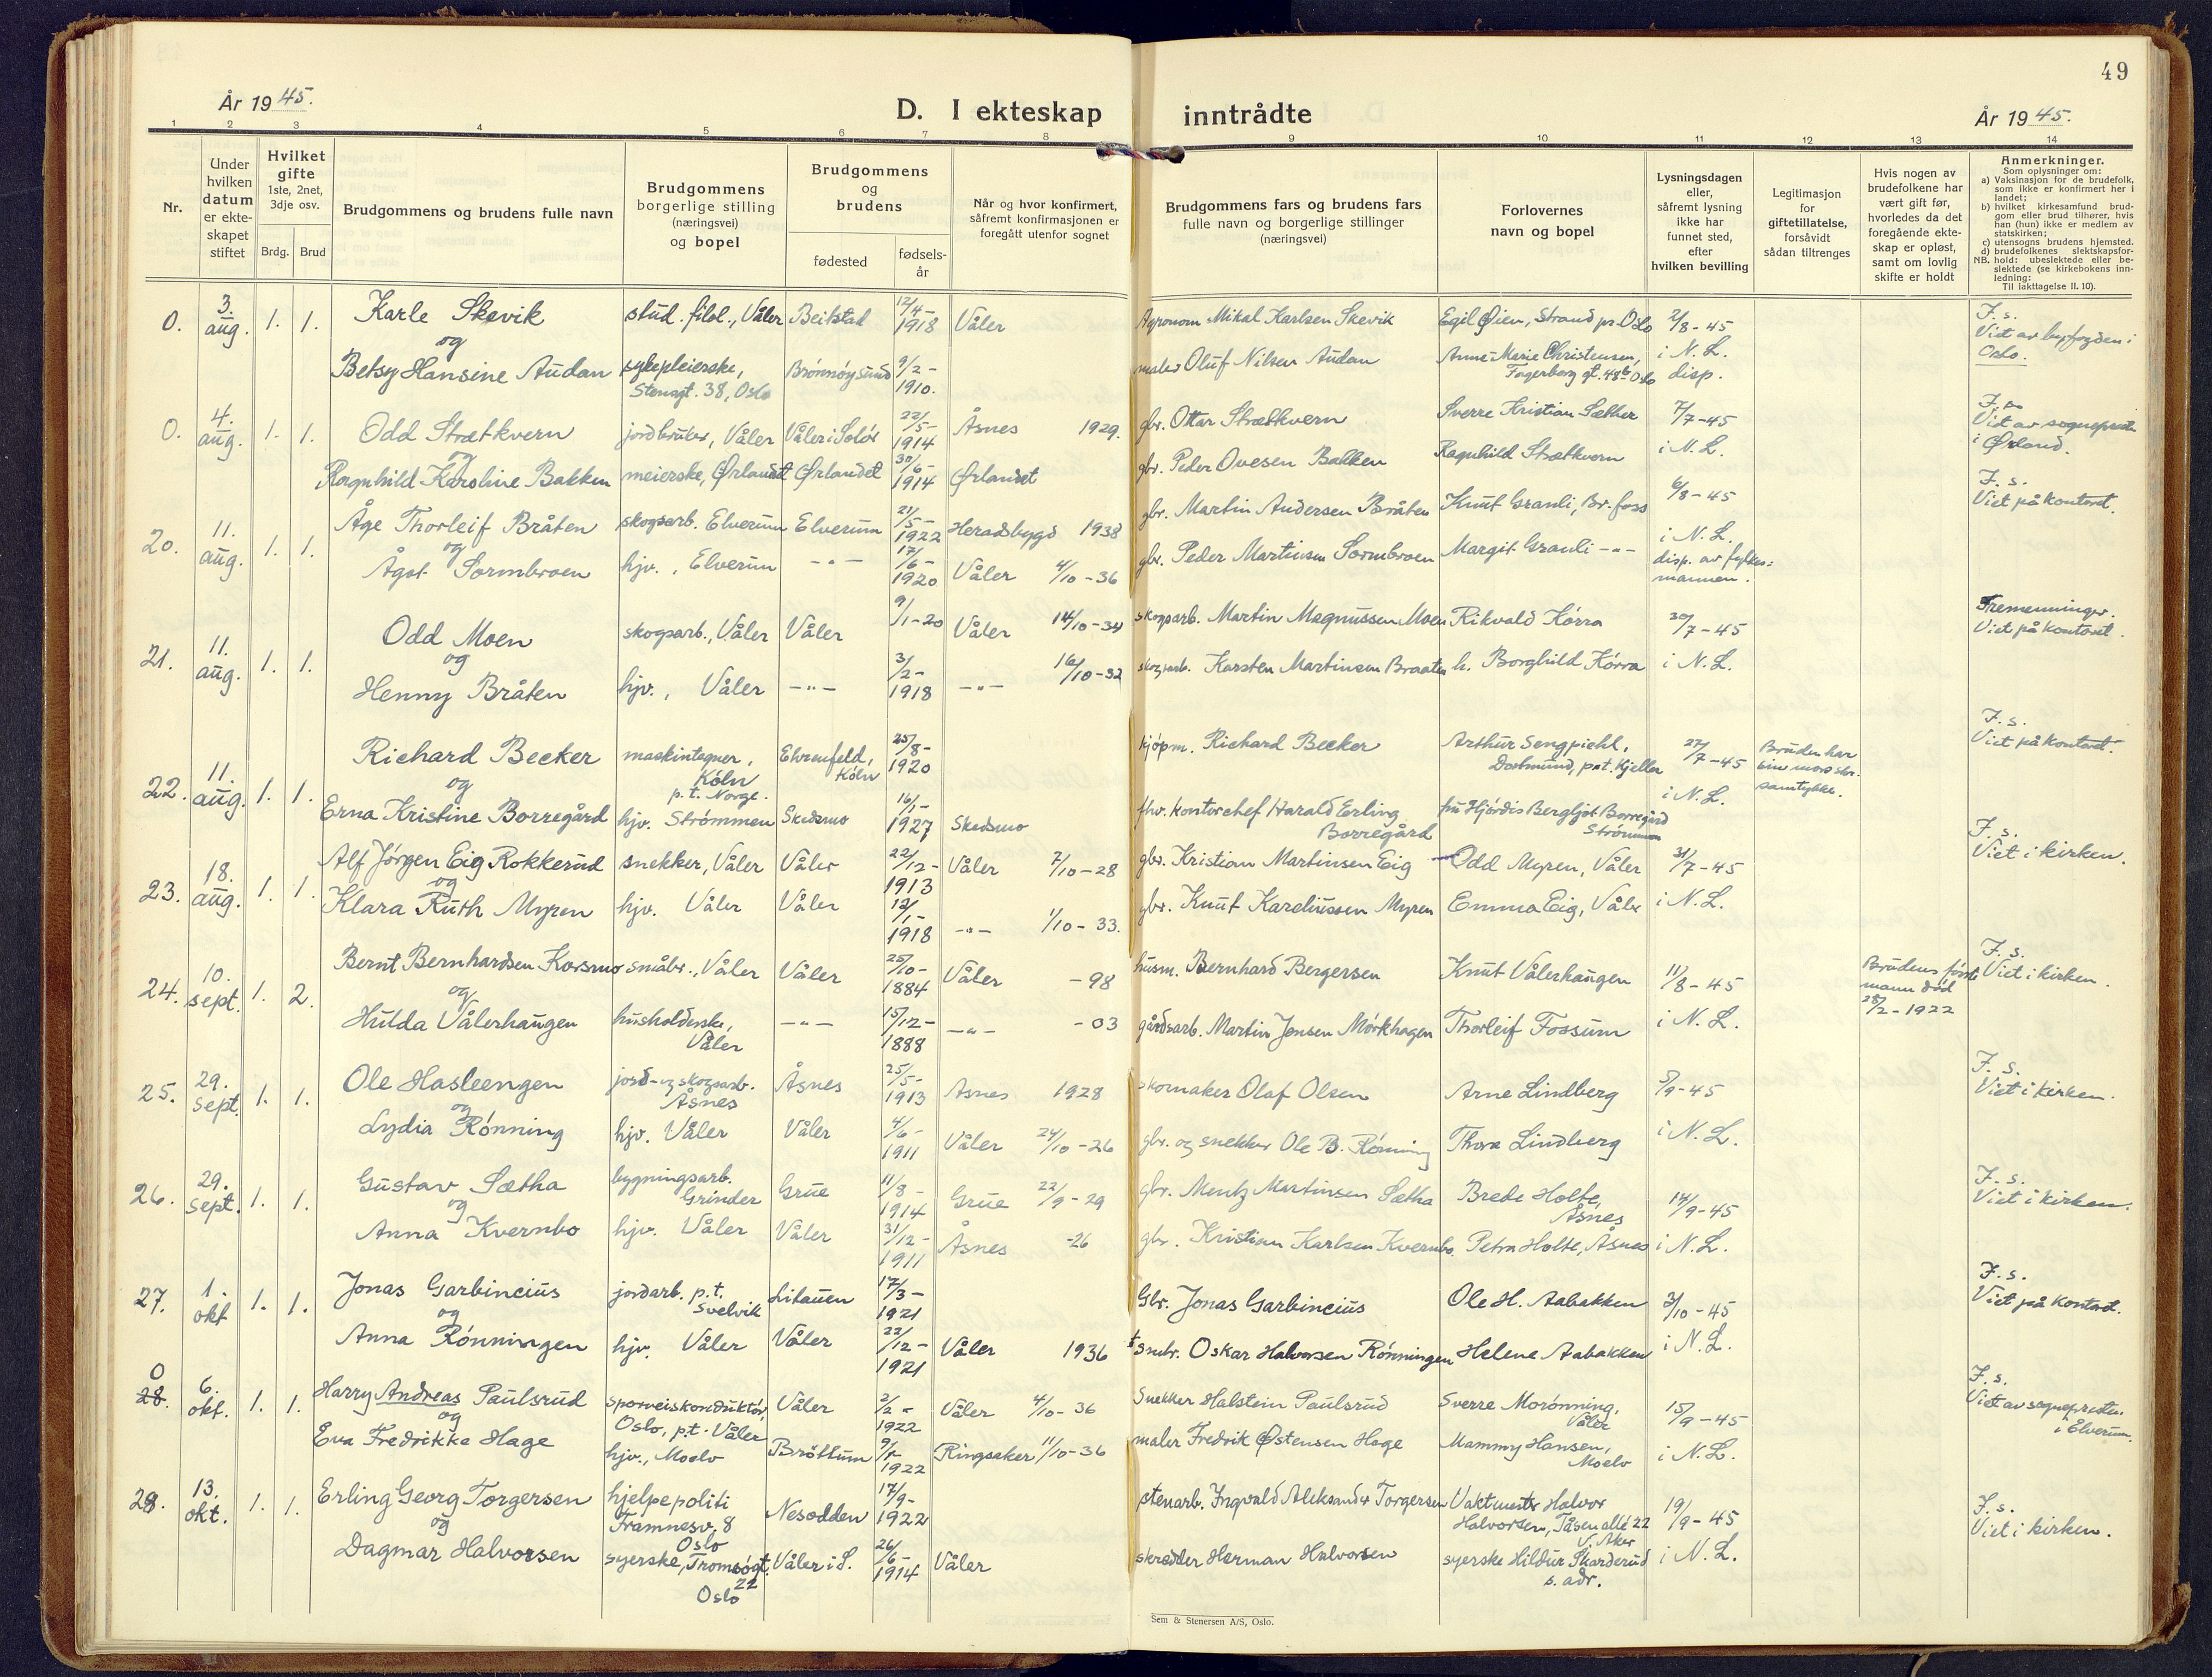 49
År 1945.
D. I ekteskap inntrådte
År 1945.
1 2 3 4 5 6 7 8 9 10 11 12 13 14
Nr.
Under hvilken datum er ekteskapet stiftet
Hvilket gifte 1ste, 2net, 3dje osv.
Brdg. Brud
Brudgommens og brudens fulle navn
Brudgommens borgerlige stilling (næringsvei) og bopel
Brudgommens og brudens
fødested
fødselsår
Når og hvor konfirmert, såfremt konfirmasjonen er foregått utenfor sognet
Brudgommens fars og brudens fars fulle navn og borgerlige stillinger (næringsvei)
Forlovernes navn og bopel
Lysningsdagen eller, såfremt lysning ikke har funnet sted, efter hvilken bevilling
Legitimasjon for giftetillatelse, forsåvidt sådan tiltrenges
Hvis nogen av brudefolkene har vært gift før, hvorledes da det foregående ekteskap er opløst, samt om lovlig skifte er holdt
Anmerkninger.
Som oplysninger om:
a) Vaksinasjon for de brudefolk, som ikke er konfirmert her i landet;
b) hvilket kirkesamfund brudgom eller brud tilhører, hvis han (hun) ikke er medlem av statskirken;
c) utensogns brudens hjemsted.
d) brudefolkenes slektskapsforhold: ubeslektede eller beslektede (se kirkebokens innledning:
NB.
Til iakttagelse II. 10).
0. 3. aug. 1. 1. Karle Skevik stud. filol., Våler Beitstad 12/4-1918 Våler Agronom Mikal Karlsen Skevik Egil Øien, Strand pr. Oslo 2/8-45 F. s. Viet av byfogden i Oslo.
og
Betsy Hansine Audan sykepleierske, Stensgt. 38, Oslo Brønnøysund 9/2-1910. maler Oluf Nilsen Audan Anne-Marie Christensen, Fagerborg gt. 48b Oslo i N. L. disp.
0. 4. aug. 1. 1. Odd Strætkvern jordbruker, Våler Våler i Solør 22/5-1914 Åsnes 1929. gbr. Ottar Strætkvern Sverre Kristian Sæther 7/7-45 Viet av sogneprest i Ørland.
og
Ragnhild Karoline Bakken meierske, Ørlandet Ørlandet 30/6-1914 Ørlandet gbr. Peder Ovesen Bakken Ragnhild Strætkvern i N. L.
20. 11. aug. 1. 1. Åge Thorleif Bråten skogsarb. Elverum Elverum 21/5-1922 Heradsbygd 1938 gbr. Martin Andersen Bråten Knut Grauli, Br. foss 6/8-45 F. s. Viet på kontoret.
og
Ågot Sormbroen hjv., Elverum -"- 17/6-1920 Våler 4/10-36 gbr. Peder Martinsen Sormbroen Margit Grauli -"- i N. L. disp. av fylkesmannen.
21. 11. aug. 1. 1. Odd Moen skogsarb., Våler Våler 9/1-20 Våler 14/10-34 skogsarb. Martin Magnussen Moen Rikvald Kørra 30/7-45 Tremenninger. Viet på kontoret.
og
Henny Bråten hjv., Våler -"- 3/2-1918 -"- 16/10-32 skogsarb. Karsten Martinsen Braaten h. Borghild Kørra i N. L.
22. 11. aug. 1. 1. Richard Becker maskintegner, Köln p. t. Norge. Ehrenfeld, Köln 25/8-1920 kjøpm. Richard Becker Arthur Sengpiehl, Dortmund, p.t. Kjeller 27/7-45 Bruden har sin mors skr. samtykke. F. s. Viet på kontoret.
og
Erna Kristine Borregård hjv. Strømmen Skedsmo 16/1-1927 Skedsmo fhv. kontorchef Harald Erling Borregård fru Hjørdis Bergljot Borregård Strømmen i N. L.
23. 18. aug. 1. 1. Alf Jørgen Eig Rokkerud snekker, Våler Våler 22/12-1913 Våler 7/10-28 gbr. Kristian Martinsen Eig Odd Myren, Våler 31/7-45 F. s. Viet i kirken.
og
Klara Ruth Myren hjv. Våler Våler 12/1-1918 -"- 1/10-33. gbr. Knut Kareliussen Myren Emma Eig, Våler i N. L.
24. 10. sept. 1. 2. Bernt Bernhardsen Korsmo småbr., Våler Våler 25/10-1884 Våler -98 husm. Bernhard Bergersen Knut Vålerhaugen 11/8-45 Brudens første mann død 28/2-1922 F. s. Viet i kirken.
og
Hulda Vålerhaugen husholderske, Våler -"- 15/12-1888 -"- -03 gårdsarb. Martin Jensen Mørkhagen Thorleif Fossum i N. L.
25. 29. sept. 1. 1. Ole Hasleengen jord- og skogsarb. Åsnes Åsnes 25/5-1913 Åsnes 1928 skomaker Olaf Olsen Arne Lindberg 5/9-45 F. s. Viet i kirken.
og
Lydia Rønning hjv. Våler Våler 4/6-1911 Våler 24/10-26 gbr. og snekker Ole B. Rønning Thora Lindberg i N. L.
26. 29. sept. 1. 1. Gustav Sætha bygningsarb. Grinder Grue 11/8-1914 Grue 22/9-29 gbr. Mentz Martinsen Sætha Brede Holte, Åsnes 14/9-45 F. s. Viet i kirken.
og
Anna Kvernbo hjv. Våler Våler 31/12-1911 Åsnes -26 gbr. Kristian Karlsen Kvernbo. Petra Holte, Åsnes i N. L.
27. 1. okt 1. 1. Jonas Garbincius jordarb. p.t. Svelvik Litauen 17/3-1921 Gbr. Jonas Garbincius Ole H. Aabakken 3/10-45 F. s. Viet på kontoret.
og
Anna Rønningen hjv. Våler Våler 22/12-1921 Våler 1936 smbr. Oskar Halvorsen Rønningen Helene Aabakken i N. L.
0 28. 6. okt. 1. 1. Harry Andreas Paulsrud sporveiskonduktør, Oslo, p.t. Våler Våler 2/2-1922 Våler 4/10-36 Snekker Halstein Paulsrud Sverre Morønning, Våler 15/9-45 F. s. Viet av sogneprest i Elverum.
og
Eva Fredrikke Hage hjv., Moelv Brøttum 1922 Ringsaker 11/10-36 maler Fredrik Østensen Hage Mammy Hansen, Moelv i N. L.
28. 13. okt. 1. 1. Erling Georg Torgersen hjelpepoliti Framnesv. 8 Oslo Nesodden 17/9-1922 stenarb. Ingvald Aleksander Torgersen Vaktmester Halvor Halvorsen, Tåsen allé 22 V. Aker 19/9-45 F. s. Viet i kirken.
og
Dagmar Halvorsen syerske, Tromsøgt. 22 Oslo Våler i S. 26/6-1914 Våler skredder Herman Halvorsen syerske Hildur Skarderud s. adr. i N. L.
Sem & Stenersen A/S, Oslo.